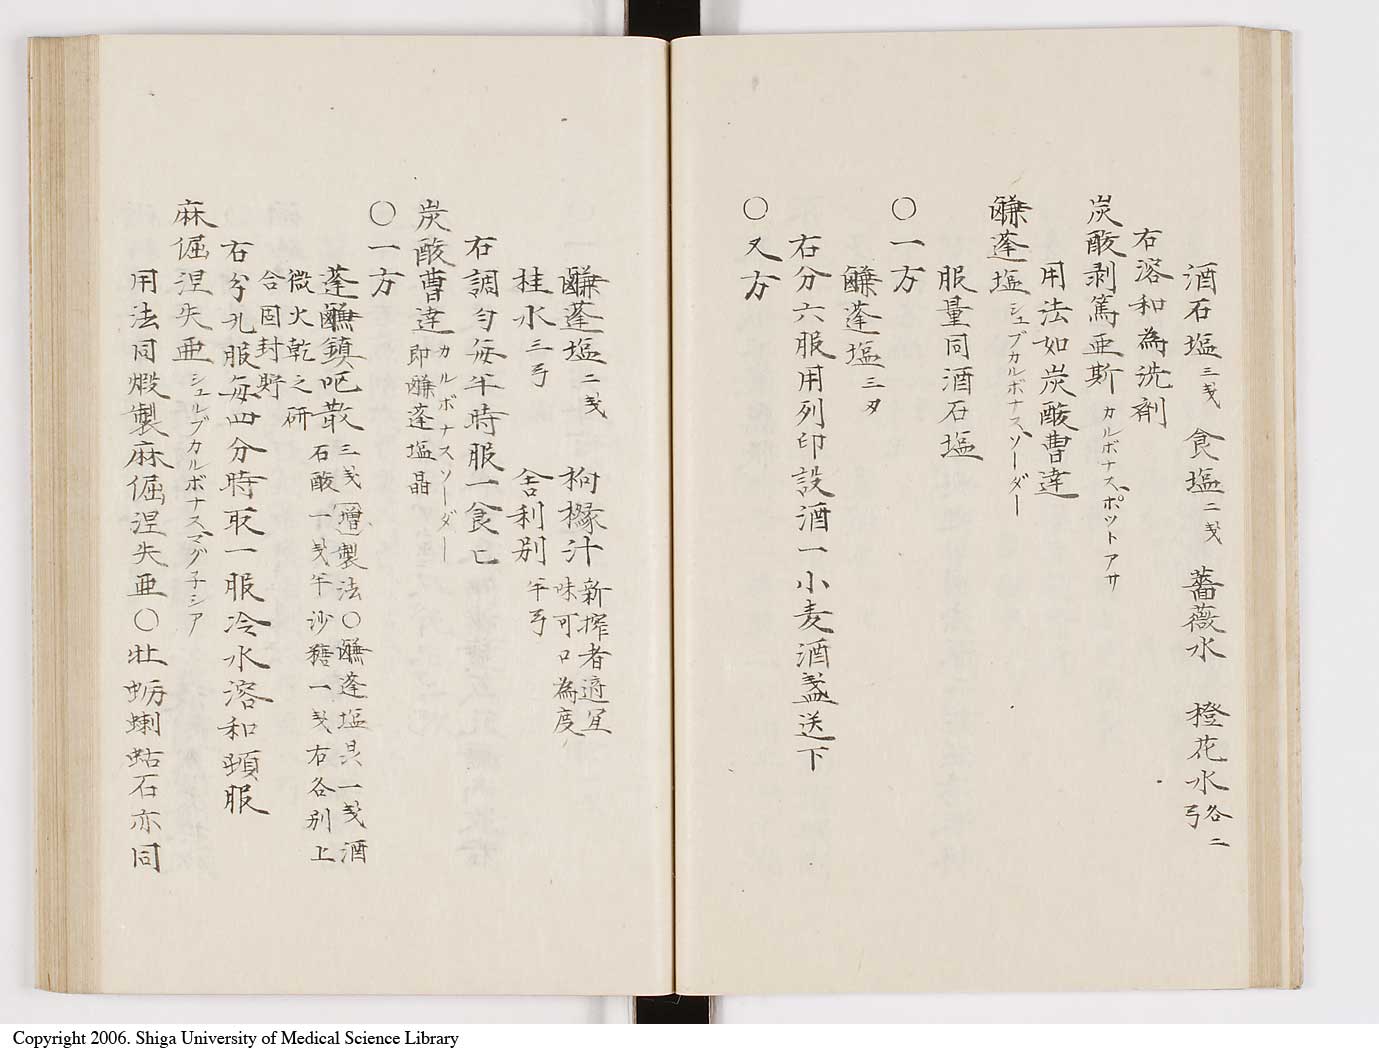 酒石塩三戔 食塩二戔 薔薇水 橙花水各二弓
右溶和為洗剤
炭酸剥篤亜斯カルボナスポットアサ
用法如炭酸曹達
鹻蓬塩シュブカルボナスソーダー
服量同酒石塩
〇一方
鹻蓬塩三刄
右分六服用列印設酒一小麦酒盞送下
〇又方
鹻蓬塩二戔 枸櫞汁新搾者適宜味可口為度
桂水三弓 舎利別半弓
右調匀毎半時服一食匕
炭酸曹達カルボナスソーダー即鹻蓬塩晶
〇一方
蓬鹻鎮呕散三戔増製法〇鹻蓬塩晶一戔酒石酸一戔半沙糖一戔右各別上
微火乾之研合固封貯
右分九服毎四分時取一服冷水溶和頓服
麻倔涅失亜シュルブカルボナスマグ子シア
用法同煅製麻倔涅失亜〇牡蛎蝲蛄石亦同
Copyright 2006. Shiga University of Medical Science Library